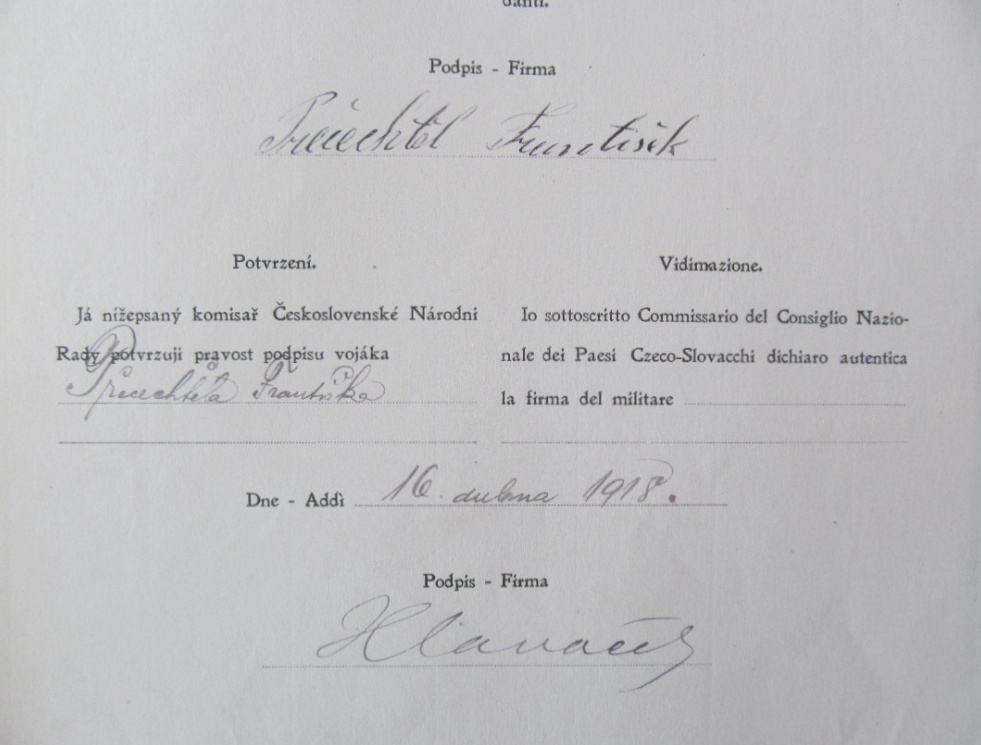 danti.
Podpis - Firma
Přecechtěl František
Potvrzení.
Já nížepsaný komisař Československé Národni
Rady potvrzuji pravost podpisu vojáka
Přecechtěla Františka
Vidimazione.
Io sottoscritto Commissario del Consiglio Nazio-
nale dei Paesi Czeco-Slovacchi dichiaro autentica
la firma del militare
Dne - Addì 16. dubna 1918.
Podpis - Firma
Hlaváček